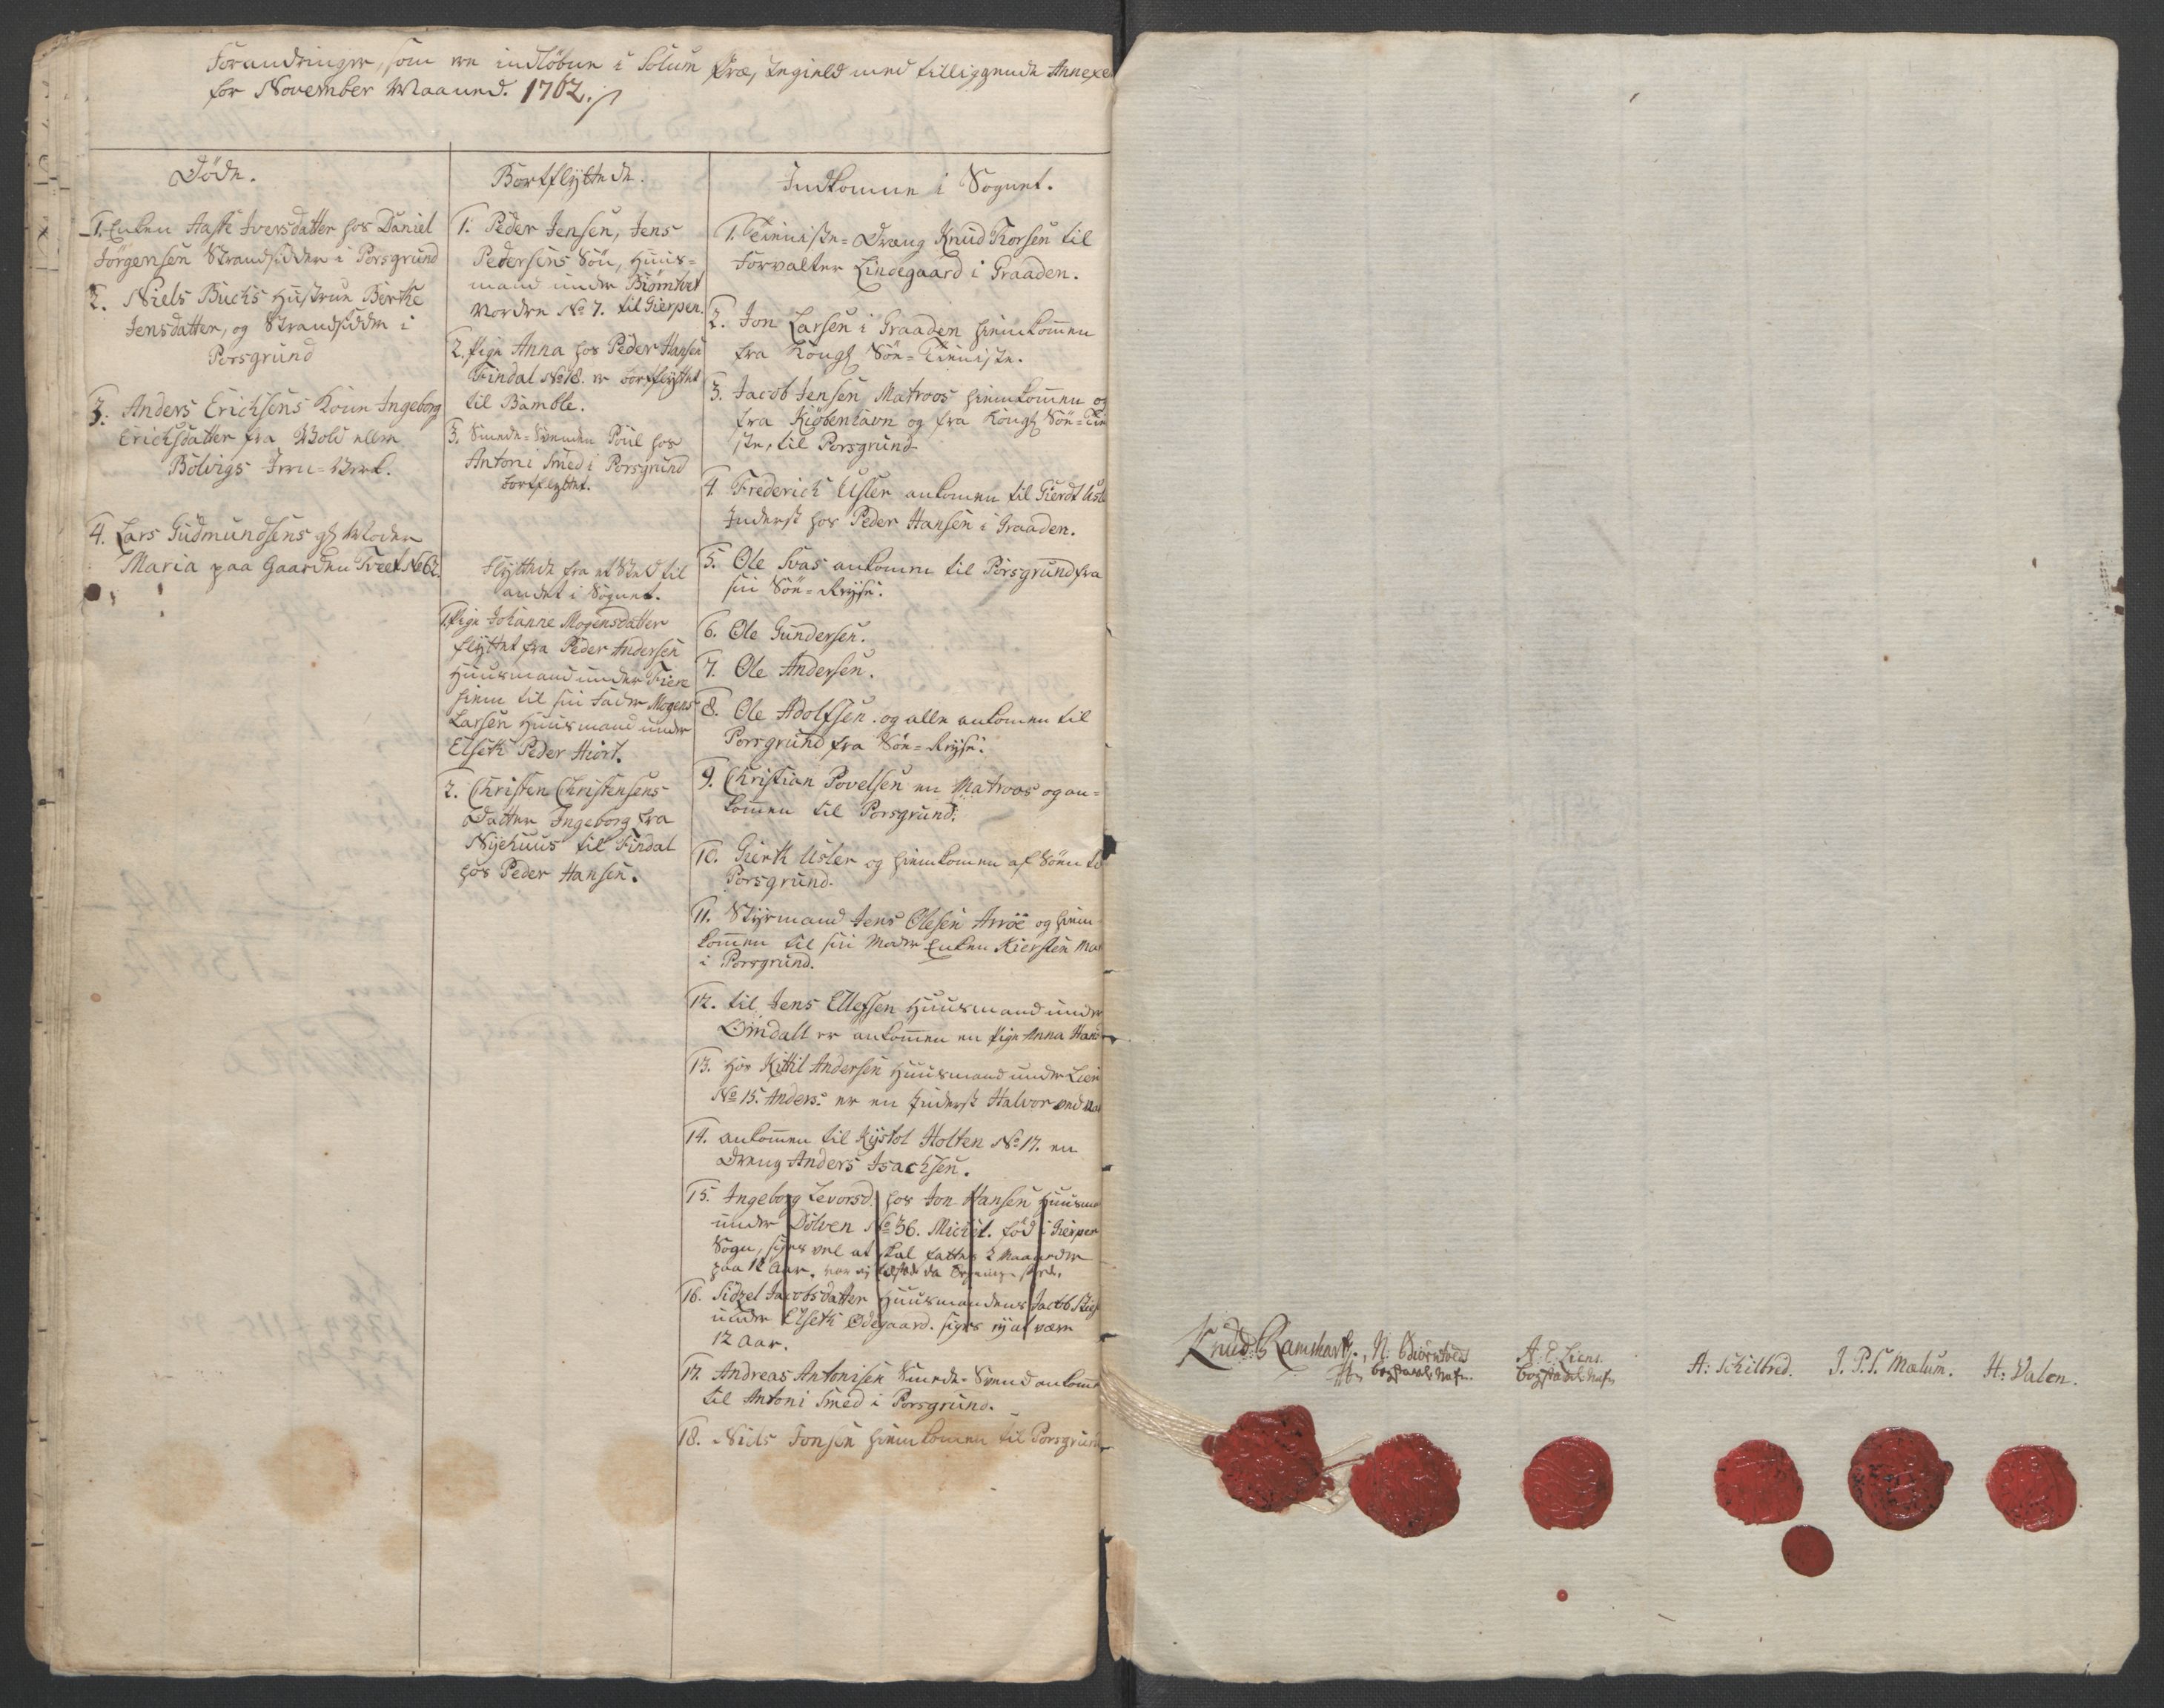 Forandringer, som ere indløbne i Solum Præstegield med tilliggende Annexer
for November Maaned. 1762.
Døde.
1. Enken Aaste Iversdatter hos Daniel
Jørgensen Strandsidder i Porsgrund
2. Niels Bucks Hustrue Berthe
Jensdatter, og Strandsidder i
Porsgrund
3. Anders Erichsens Kone Ingeborg
Erichsdatter fra Wold eller
Bolvigs Jern-Verk.
4. Lars Gudmundsens gl. Moder
Maria paa Gaarden Tveet No 62.
Bortflyttede.
1. Peder Jensen, Jens
Pedersens Søn, Huus-
mand under Biørntvet
Nordre No 7. til Gierpen.
2. Pige Anna hos Peder Hansen
Findal No 18. er bortflyttet
til Bamble.
3. Smede-Svenden Poul hos
Antoni Smed i Porsgrund
bortflyttet.
Flyttede fra et Sted til
andet i Sognet.
1. Pige Johanne Mogensdatter
flyttet fra Peder Andersen
Huusmand under Fiere
hiem til sin Fader Mogens
Larsen Huusmand under
Elseth Peder Hiort.
2. Christen Christensens
Datter Ingeborg fra
Nyehuus til Findal
hos Peder Hansen.
Indkomne i Sognet.
1. Tieniste-Dreng Knud Thorsen til
Forvalter Lindegaard i Graaden.
2. Jon Larsen i Graaden hiemkommen
fra Kongl. Søe-Tieniste.
3. Jacob Jensen Matroos hiemkommen og
fra Kiøbenhavn og fra Kongl. Søe-Tie
ste, til Porsgrund
4. Frederich Usler ankommen til Gierdt Usle
Inderst hos Peder Hansen i Graaden.
5. Ole Svas ankommen til Porsgrund fra
sin Søe-Reyse.
6. Ole Gundersen.
7. Ole Andersen.
8. Ole Adolfsen. og alle ankomen til
Porsgrund fra Søe-Reyse.
9. Christian Povelsen en Matroos og an-
kommen til Porsgrund.
10. Gierth Usler og hiemkomen af Søen til
Porsgrund.
11. Styrmand Jens Olesen Arröe og hiem-
kommen til sin Moder Enken Kiersten Ma
i Porsgrund.
12. til Jens Ellefsen Huusmand under
Omdalt er ankommen en Pige Anna Hans
13. hos Kittil Andersen Huusmand under Lien
No 15. Anders. er en Inderst Halvor ved
14. ankommen til Kystol Holten No 17. en
Dreng Anders Isachsen.
15. Ingeborg Levorsd. hos Jon Hansen Huusma
under Dolven No 36. Michil. fød i Gierpen
Sogn, siges vel at skal fattes 2 Maaneder
paa 12 Aar. var ej tilstede da
16. Sidzel Jacobsdatter Huusmandens Jacob
under Elseth Ødegaard. siges ej at være
12 Aar.
17. Andreas Antonisen Smede-Svend ankomen
til Antoni Smed i Porsgrund.
18. Niels Jonsen hiemkommen til Porsgrund
Knud Ramshart., N: Biørntvedt A. E. Liens. A: Schilbred. J. P. S. Mælum. H: Valen.
bogstavel. Nafn. bogstavel. Nafn